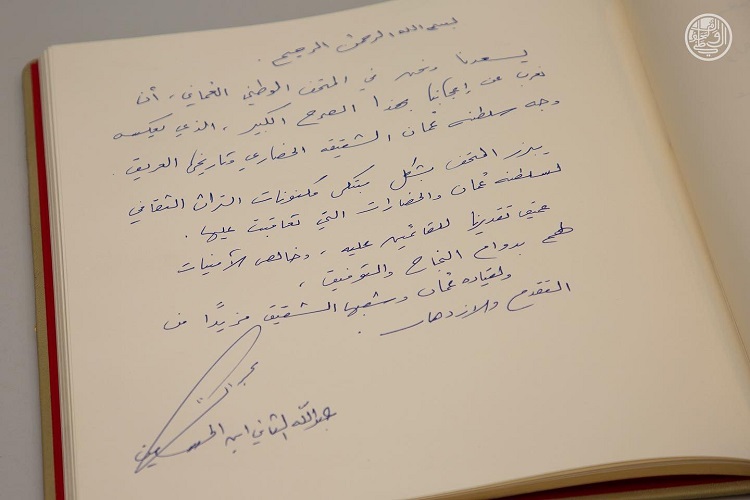 بسم الله الرحمن الرحيم .
يسعدنا ونحن في المتحف الوطني العماني ، أن
نعرب عن إعجابنا بهذا الصرح الكبير ، الذي يعكس
وجه سلطنة عُمان الشقيقة الحضاري وتاريخها العريق .
يبرز المتحف بشكل مبتكر مكنونات التراث الثقافي
لسلطنة عُمان والحضارات التي تعاقبت عليها .
عميق تقديرنا للقائمين عليه ، وخالص الأمنيات
لهم بدوام النجاح والتوفيق ،
ولقيادة عُمان وشعبها الشقيق مزيدًا من
التقدم والازدهار .
عبدالله الثاني ابن الحسين